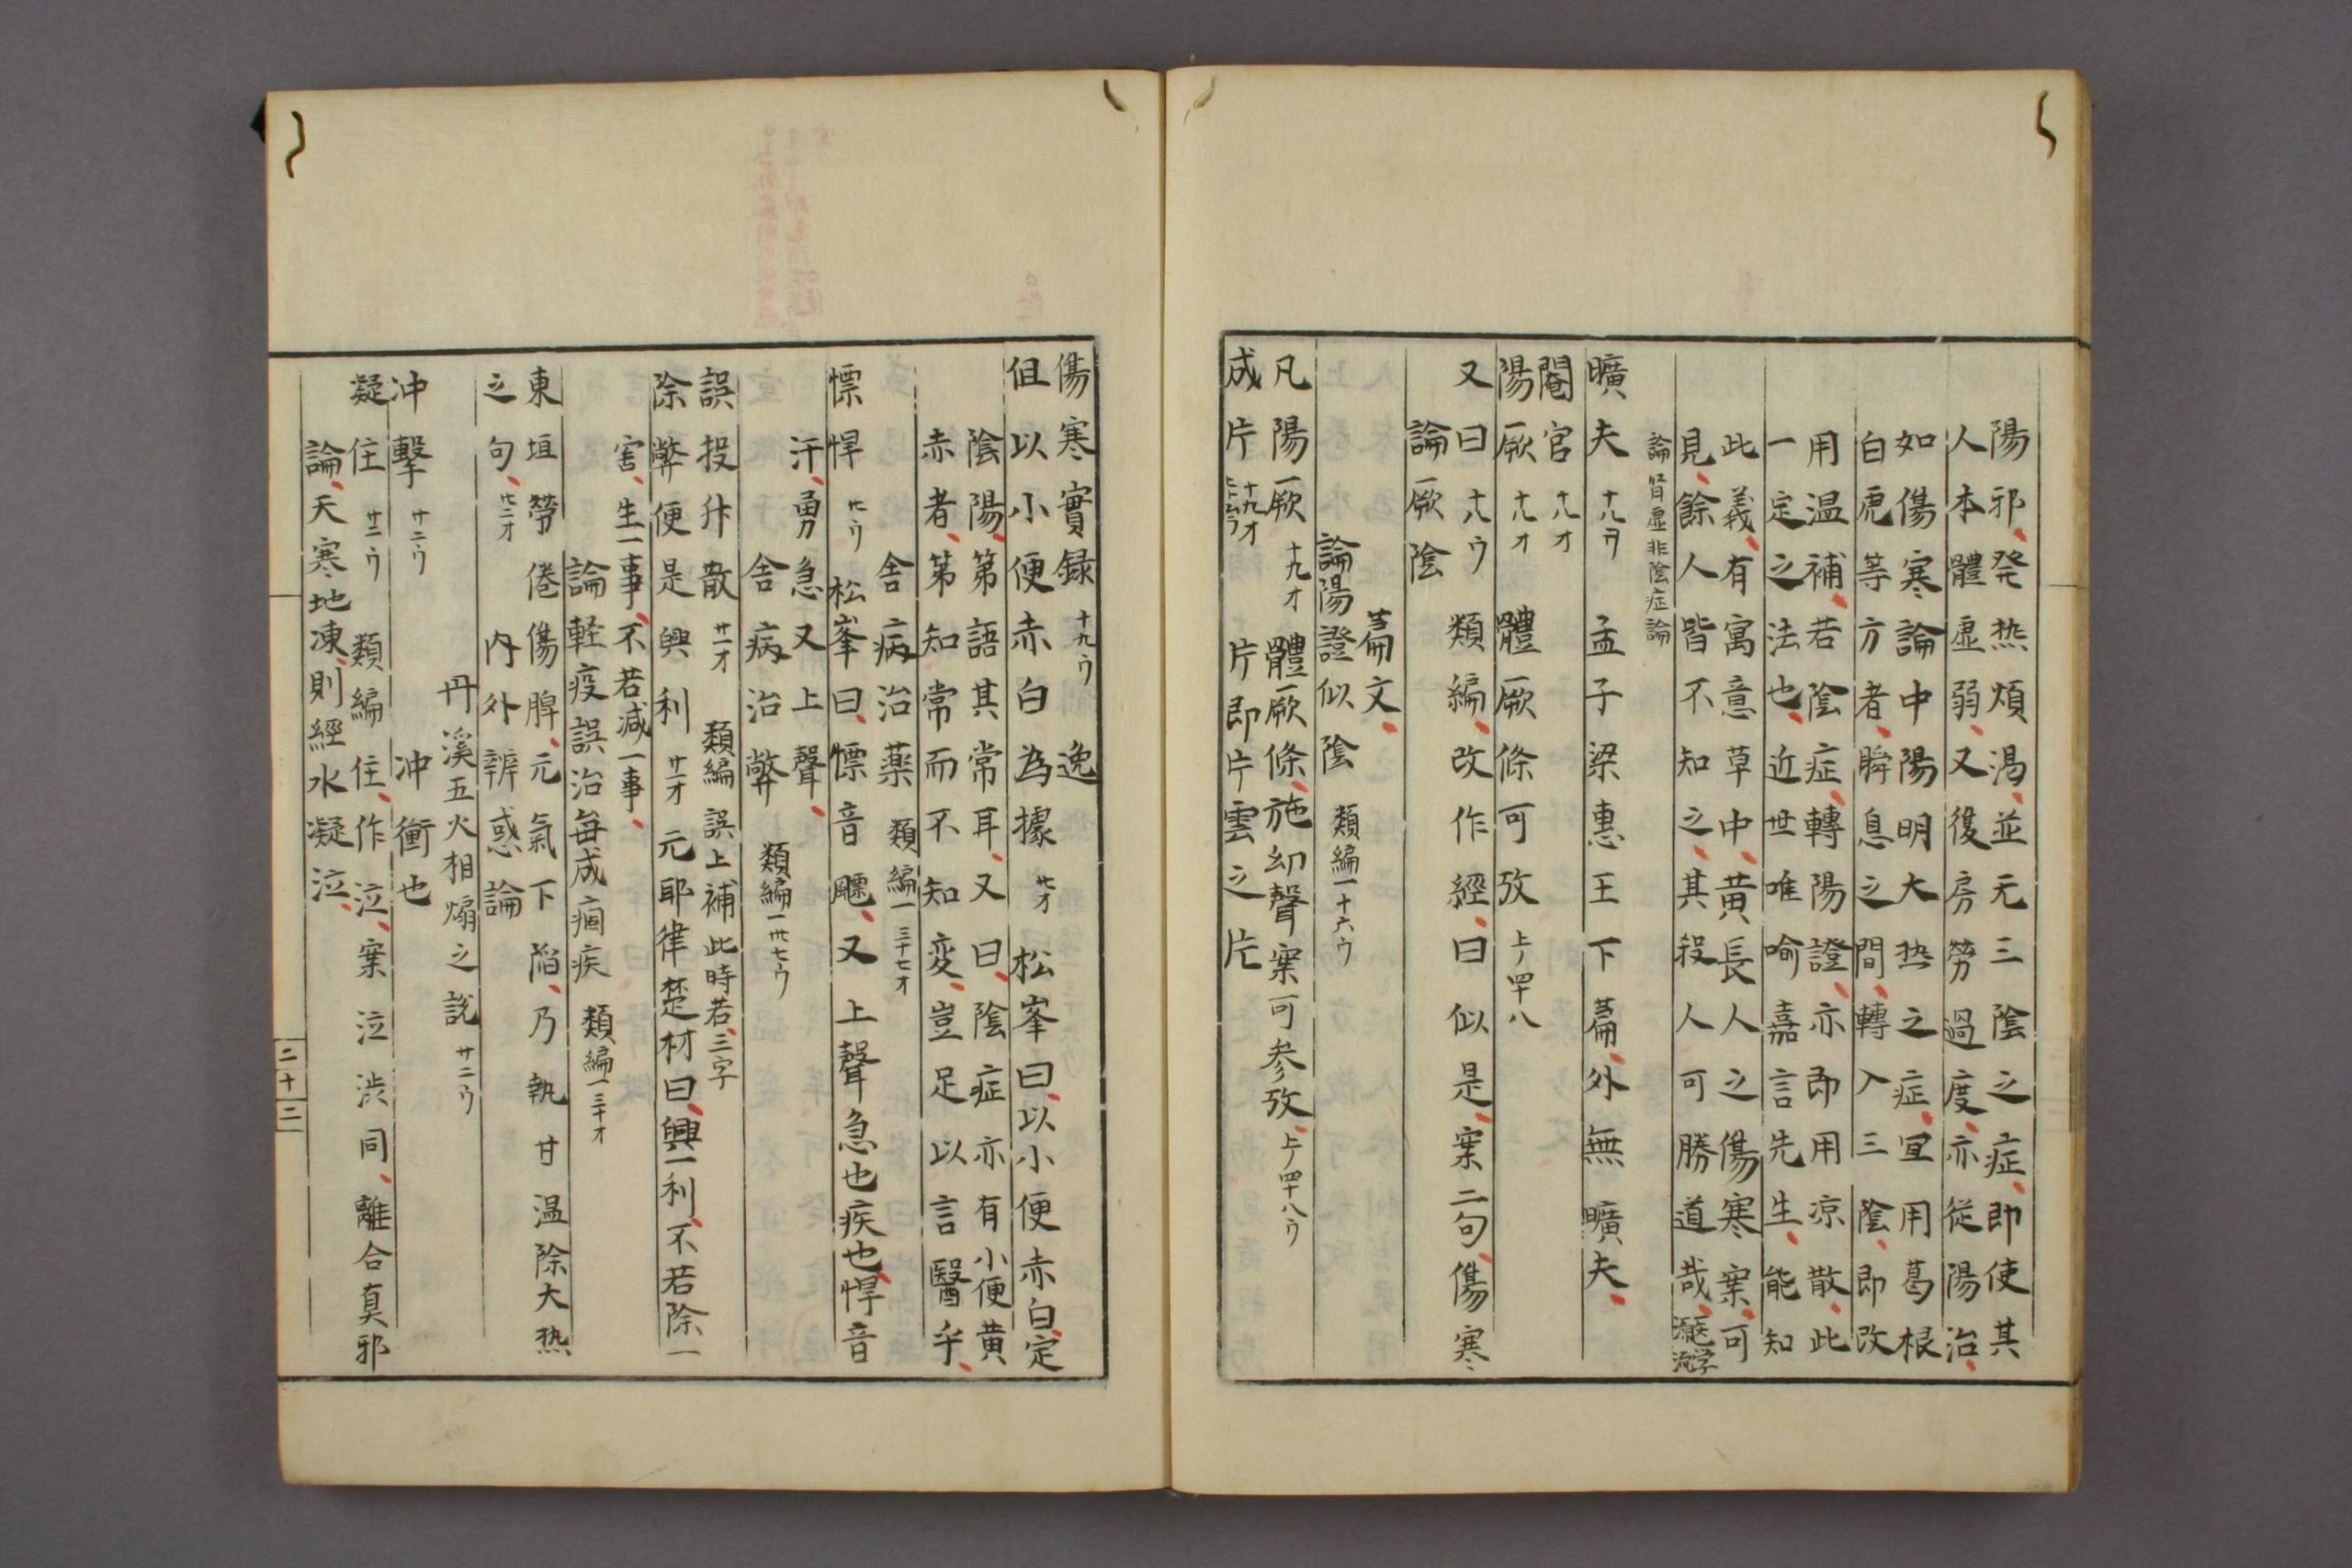 陽邪、発热煩渇、並无三陰之症、即使其
人本體虛弱、又復房勞過度、亦従陽治、
如傷寒論中陽明大热之症、宜用葛根
白虎等方者、瞬息之間、轉入三陰、即改
用温補、若陰症、轉陽證、亦即用凉散、此
一定之法也、近世唯喻嘉言先生、能知
此義、有寓意草中、黄長人之傷寒案、可
見、餘人皆不知之、其殺人可勝道哉、
論腎虛非陰症論
曠夫 十八ヲ 孟子梁惠王下萹、外無曠夫、
閹官 十八オ
陽厥 十八オ 體厥條可攷 上ノ四十八
又曰 十八ウ 類編、改作經、曰似是、案二句、傷寒
論厥陰萹文、
論陽證似陰 類編一十六ウ
凡陽厥 十九オ 體厥條、施幼聲案可参攷、上ノ四十八ウ
成片 十九オ 片即片雲之片
傷寒實録 十九ウ 逸
但以小便赤白為據 廿オ 松峯曰、以小便赤白、定
陰陽、第語其常耳、又曰、陰症亦有小便黄
赤者、第知常而不知変、豈足以言醫乎、
舎病治薬 類編一三十七オ
慓悍 廿ウ 松峯曰、慓音飃、又上聲急也疾也、悍音
汗、勇急又上聲、
舎病治弊 類編一卅七ウ
誤投升散 廿一オ 類編誤上補此時若、三字
除弊便是興利 廿一オ 元耶律楚材曰、興一利、不若除一
害、生一事、不若減一事、
論軽疫誤治每成痼疾 類編一三十オ
東垣勞倦傷脾、元氣下陥、乃執甘温除大热
之句、廿二オ 内外辨惑論
丹溪五火相煽之說 廿二ウ
冲擊 廿二ウ 冲衝也
凝住 廿二ウ 類編住、作泣、案泣渋同、離合真邪
論、天寒地凍、則經水凝泣、
二十二